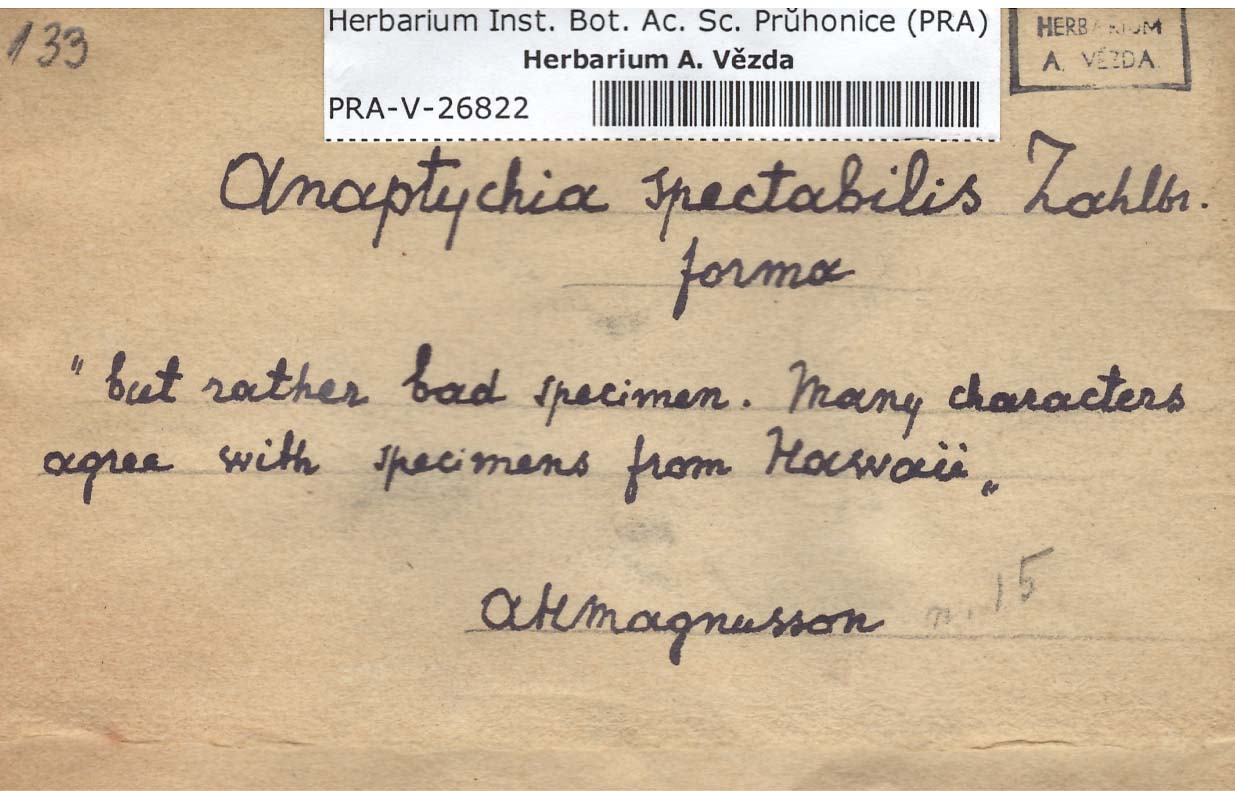 133
Herbarium Inst. Bot. Ac. Sc. Průhonice (PRA)
Herbarium A. Vězda
PRA-V-26822
HERBARIUM
A. VĚZDA.
Anaptychia spectabilis Zahlbr.
forma
"but rather bad specimen. Many characters
agree with specimens from Hawaii„
AHMagnusson
n. 15